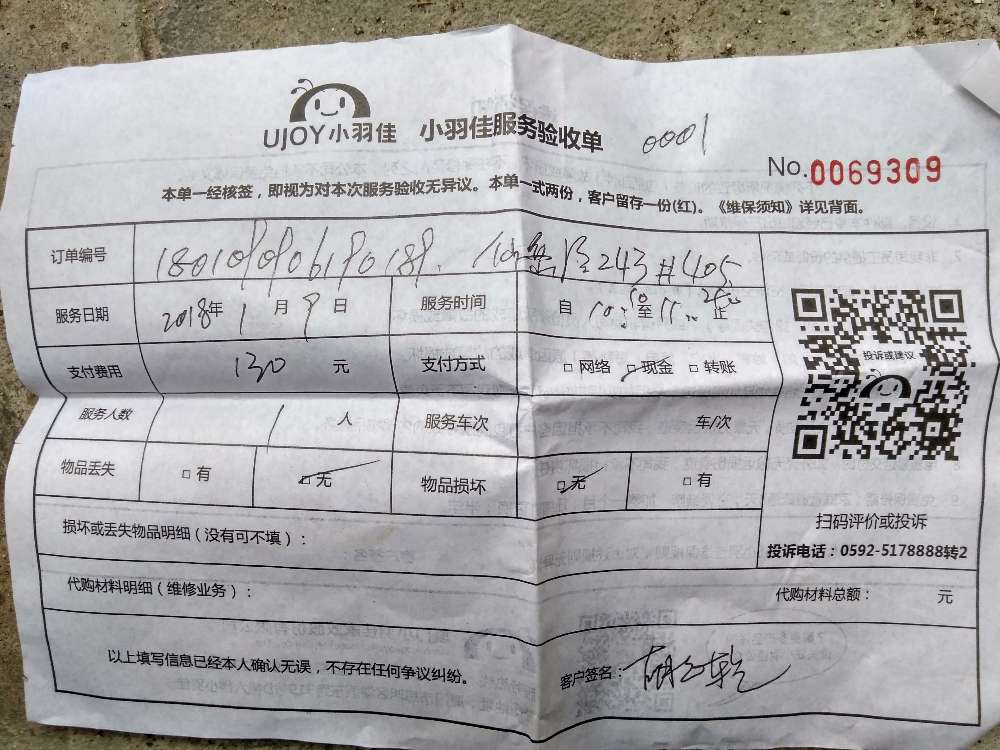 UJOY小羽佳 小羽佳服务验收单 0001
No.0069309
本单一经核签，即视为对本次服务验收无异议。本单一式两份，客户留存一份(红)。《维保须知》详见背面。
订单编号 243#405
服务日期 2018年1月9日 服务时间 自 至 止
支付费用 130 元 支付方式 □网络 □现金 □转账
服务人数 1 人 服务车次 车/次
物品丢失 □有 □无 物品损坏 □无 □有
投诉或建议
扫码评价或投诉
投诉电话：0592-5178888转2
损坏或丢失物品明细（没有可不填）：
代购材料明细（维修业务）： 代购材料总额： 元
以上填写信息已经本人确认无误，不存在任何争议纠纷。 客户签名：